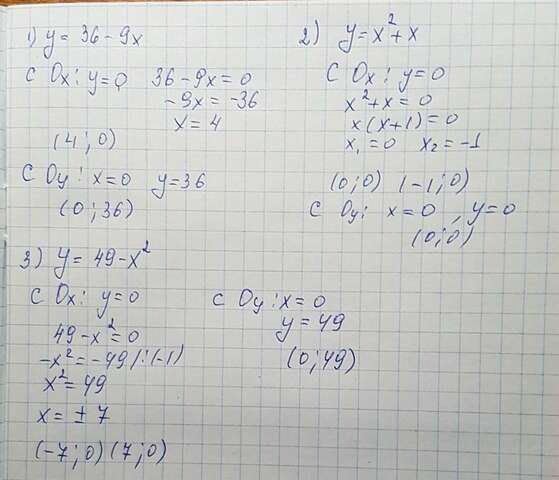 1) y = 36 - 9x
С Ox: y=0 36-9x=0
-9x=-36
x=4
(4;0)
С Oy: x=0 y=36
(0;36)
2) y=x²+x
С Ox: y=0
x²+x=0
x(x+1)=0
x₁=0 x₂=-1
(0;0) (-1;0)
С Oy: x=0, y=0
(0;0)
3) y=49-x²
С Ox: y=0
49-x²=0
-x²=-49/:(-1)
x²=49
x=±7
(-7;0)(7;0)
С Oy: x=0
y=49
(0;49)